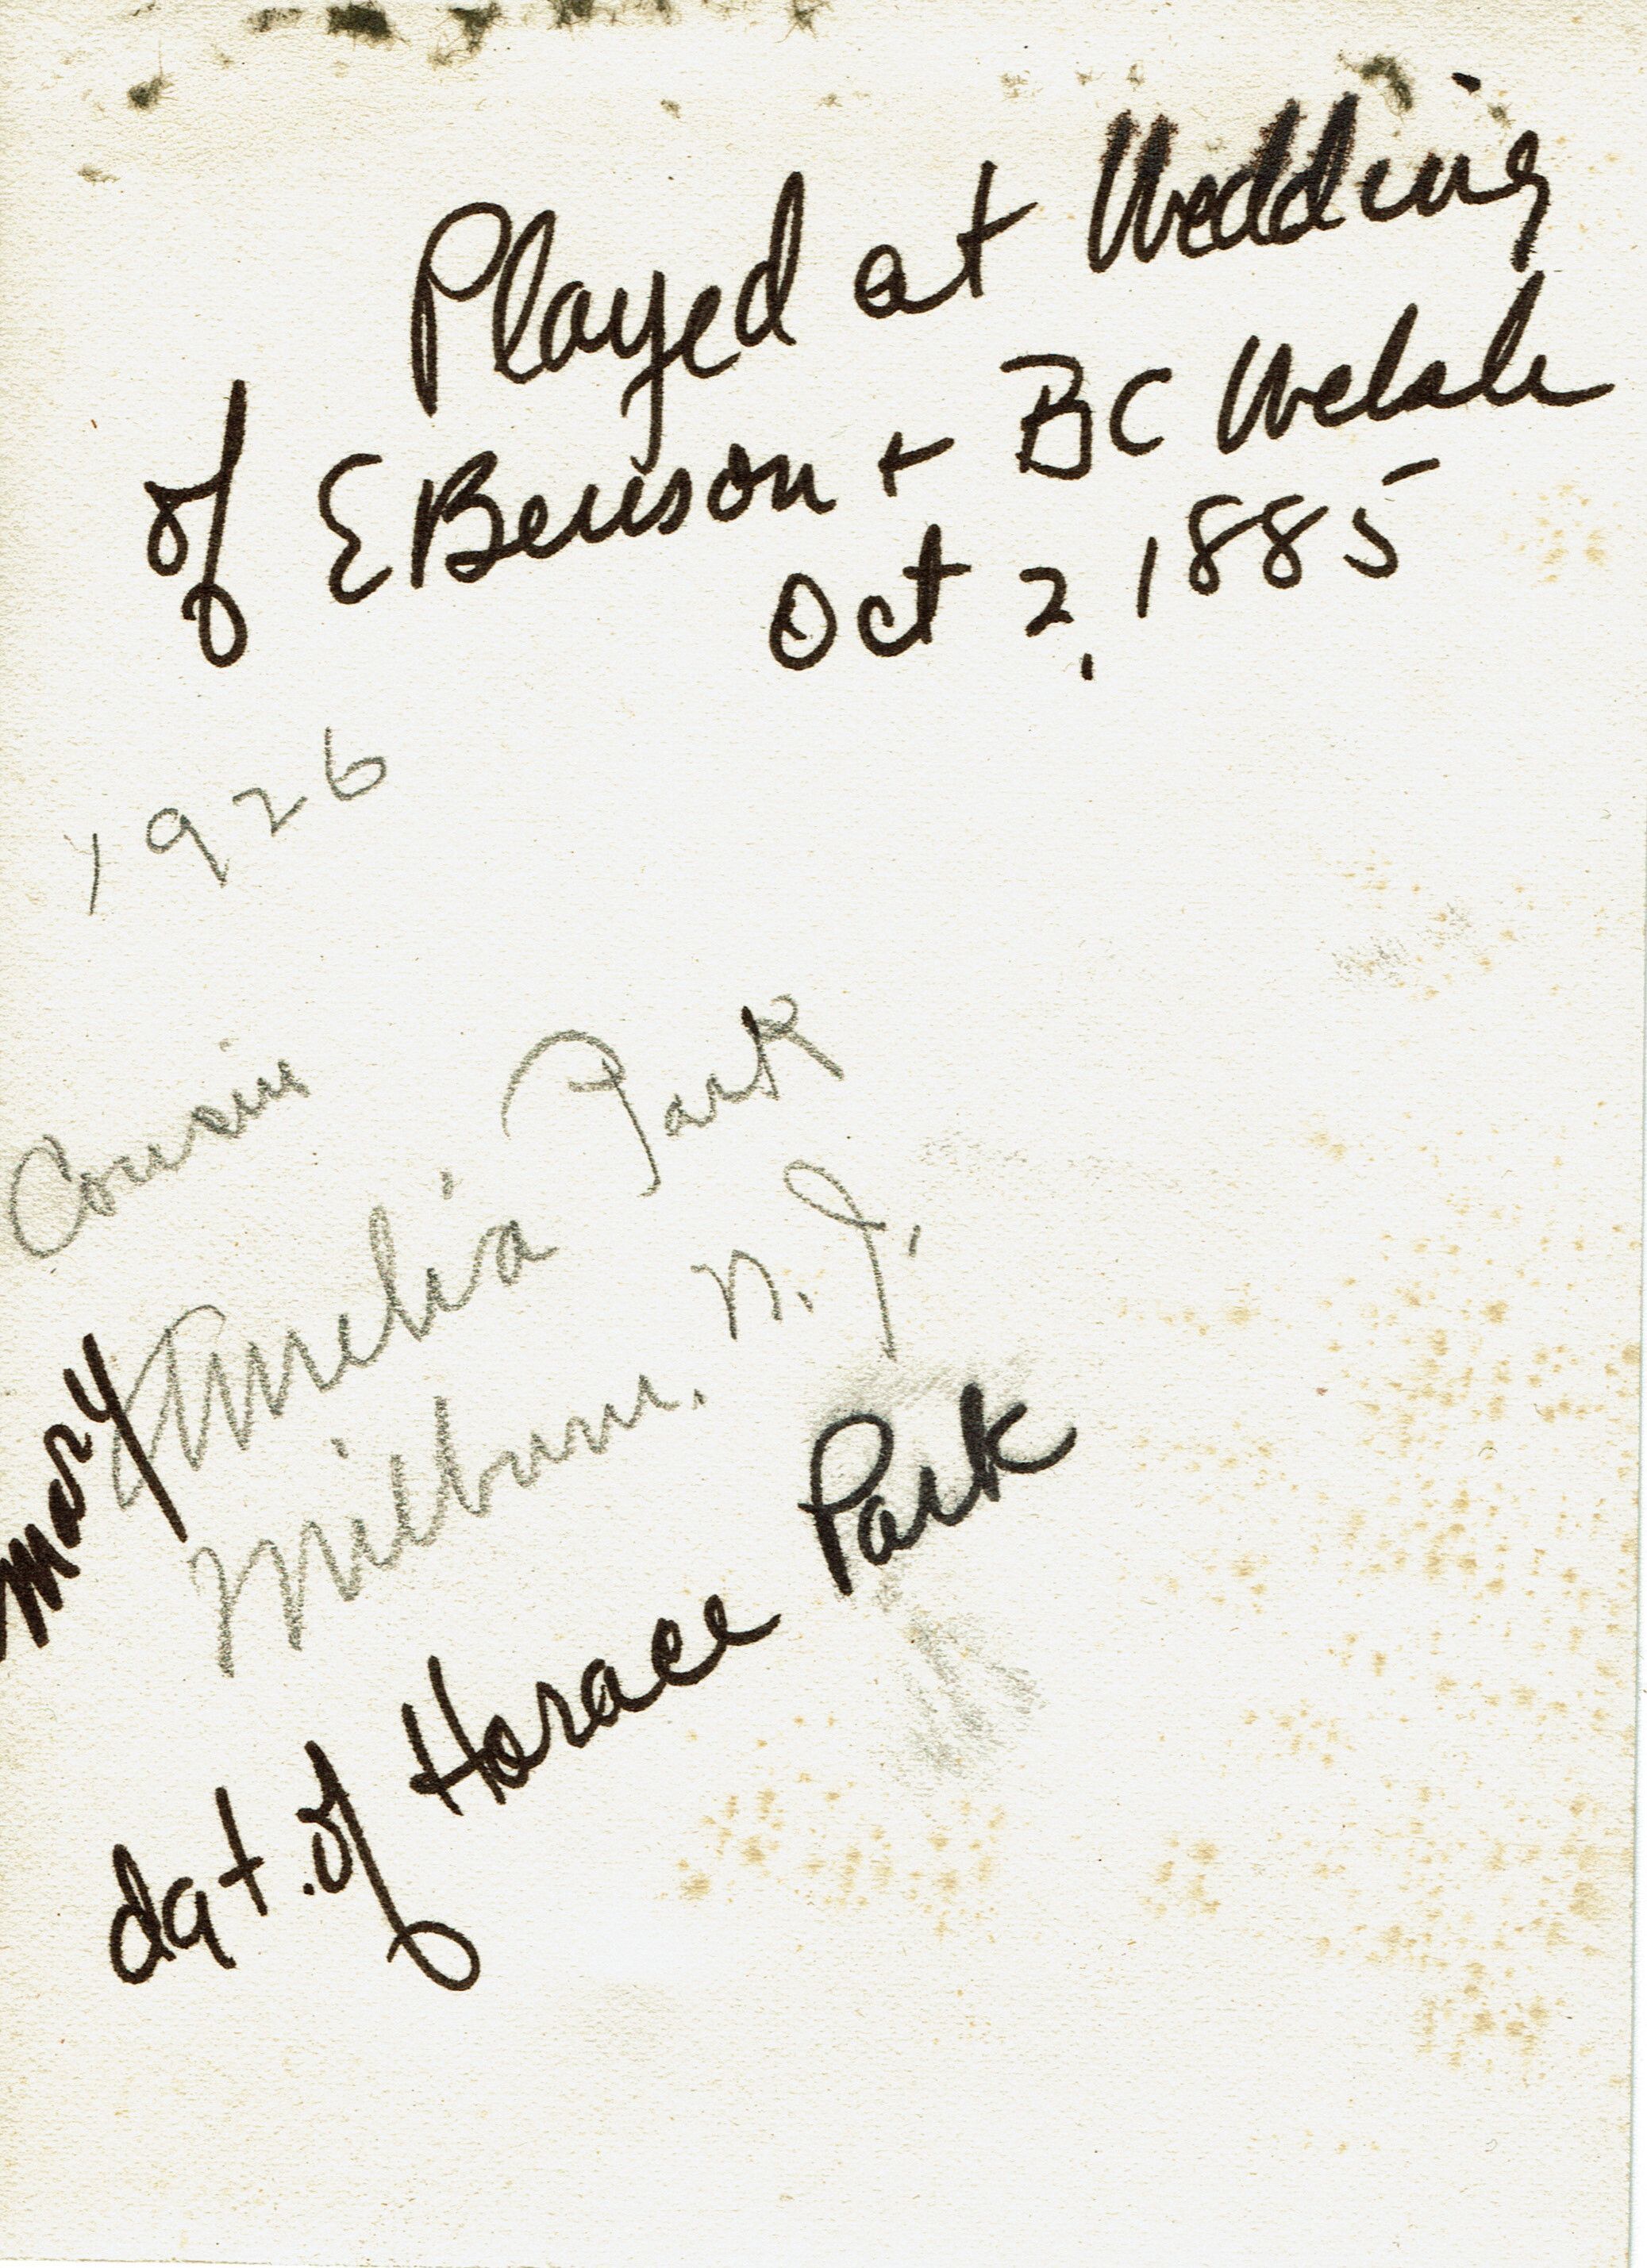 Played at Wedding
of E Benson + BC Welsh
Oct 2, 1885
1926
Cousin
Mary Amelia Park
Milburn, N. J.
dat. of Horace Park